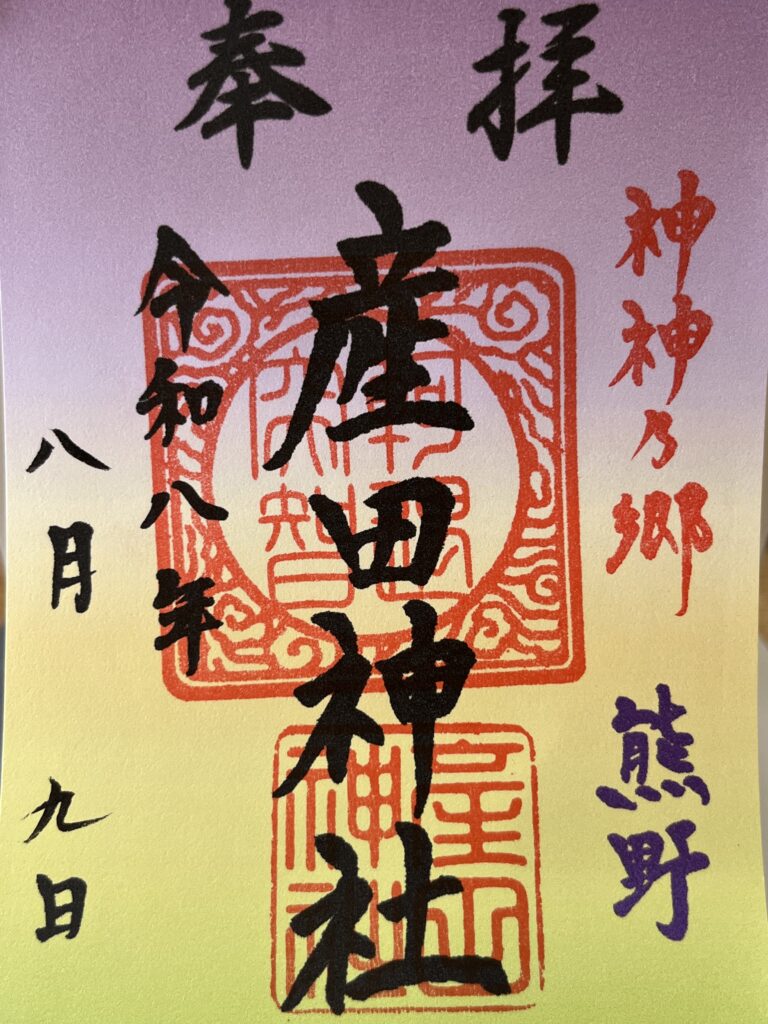 奉拝
神神乃郷 熊野
産田神社
令和八年
八月九日
軻遇
突智
産田
神社